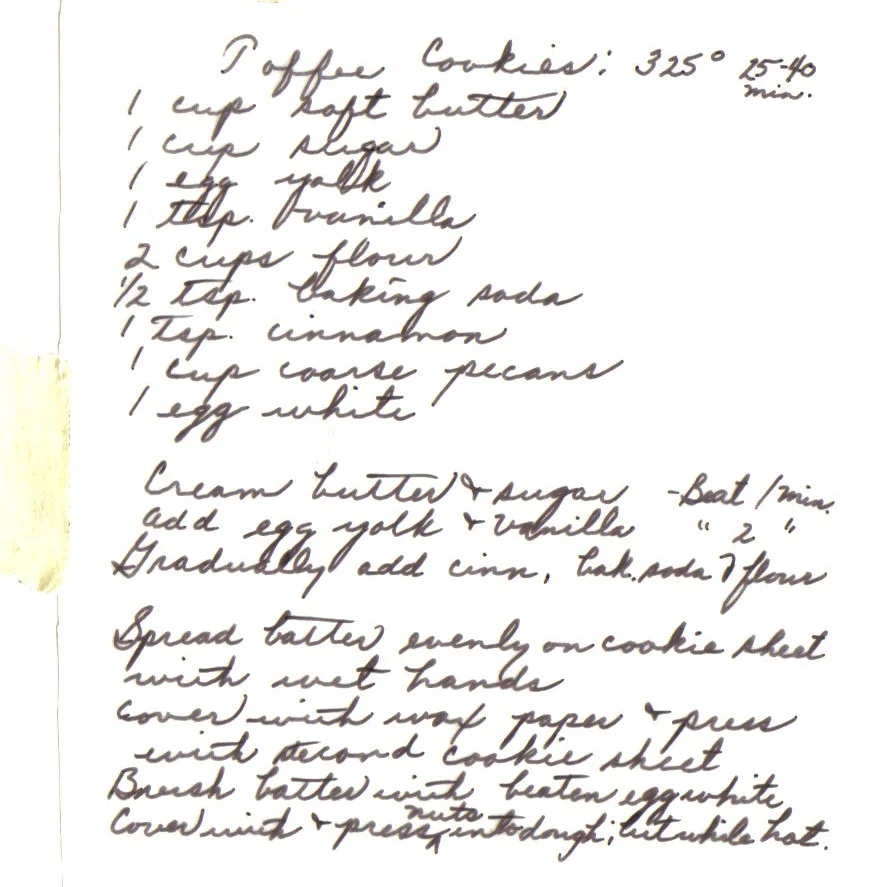 Toffee Cookies: 325° 25-40 min.
1 cup soft butter
1 cup sugar
1 egg yolk
1 tsp. vanilla
2 cups flour
1/2 tsp. baking soda
1 tsp. cinnamon
1 cup coarse pecans
1 egg white
Cream butter & sugar - Beat 1 min.
add egg yolk & vanilla " 2 "
Gradually add cinn, bak. soda & flour
Spread batter evenly on cookie sheet
with wet hands
Cover with wax paper & press
with second cookie sheet
Brush batter with beaten egg white
Cover with & press nuts into dough; cut while hot.